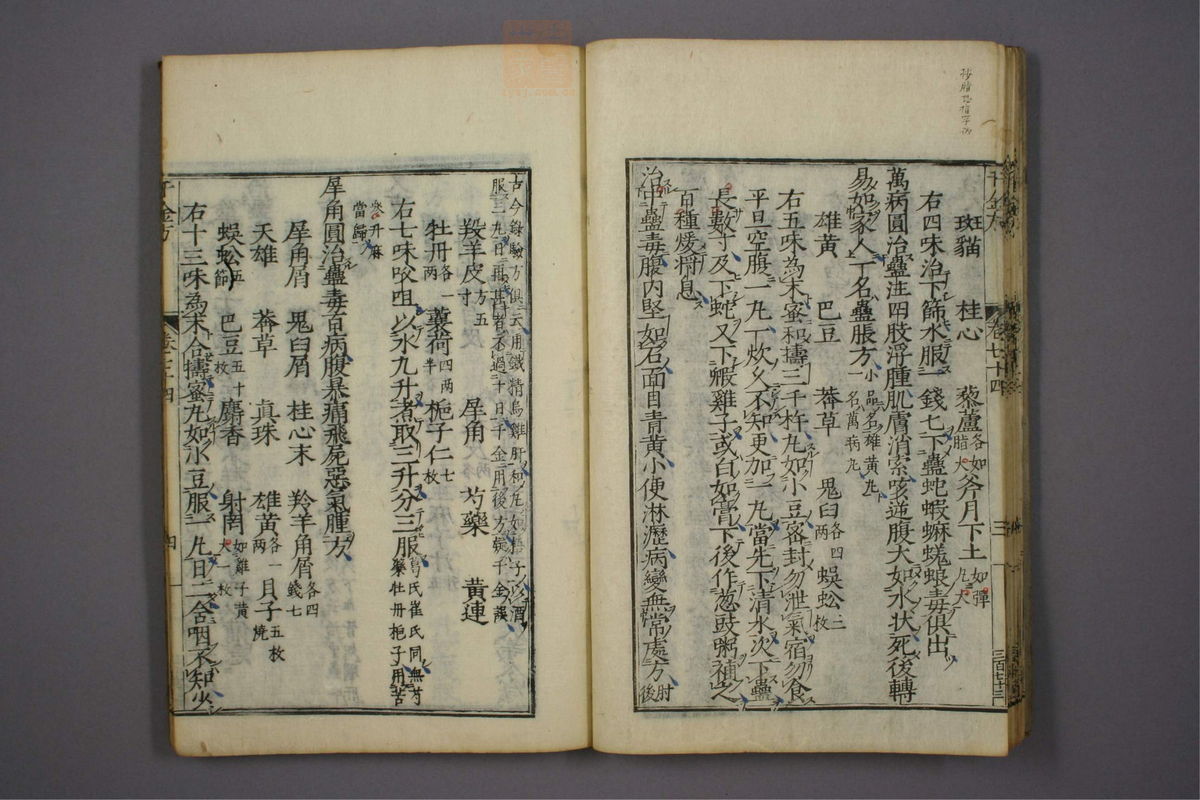 斑貓 桂心 藜蘆各如指大 斧月下土如彈丸大
右四味治下篩水服一錢七下蠱蛇蝦蟆蜣蜋毒俱出
萬病圓治蠱注四肢浮腫肌膚消索咳逆腹大如水状死後轉
易如家人一名蠱脹方小品名雄黄丸一名萬病丸
雄黄 巴豆 莽草 鬼臼各四兩 蜈蚣三枚
右五味為末蜜和擣三千杵丸如小豆密封勿泄氣宿勿食
平旦空腹一丸一炊久不知更加一丸當先下清水次下蠱
長數寸及下蛇又下蝦雞子或白如膏下後作葱豉粥補之
百種煖将息
治中蠱毒腹内堅如石面目青黄小便淋瀝病變無常處方肘後
古今錄驗方俱云用鐵精烏雞肝和丸如梧子以酒
服三丸日再甚者不過十日千金用後方疑千金誤
羖羊皮方五寸 犀角 芍藥 黄連
牡丹各一兩 蘘荷四兩半 梔子仁七枚
右七味㕮咀以水九升煮取三升分三服葛氏崔氏同無芍藥牡丹梔子用苦
參升麻當歸
犀角圓治蠱毒百病腹暴痛飛尸惡氣腫方
犀角屑 鬼臼屑 桂心末 羚羊角屑各四錢七
天雄 莽草 真珠 雄黄各一兩 貝子五枚燒
蜈蚣五節 巴豆五十枚 麝香 射罔如雞子黄大一枚
右十三味為末合擣蜜丸如小豆服一丸日二含咽不知少
千金方 卷七十四 三 三百七十三
千金方 四